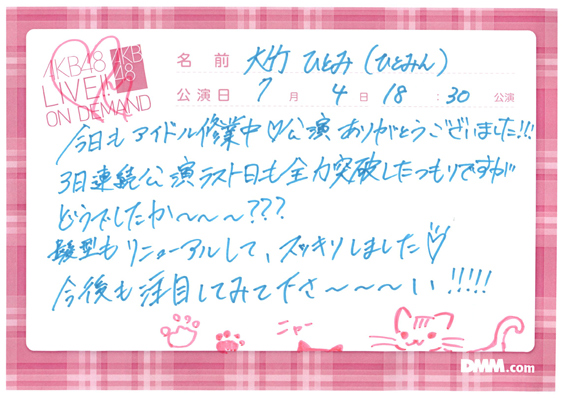 AKB48
LIVE!!
ON DEMAND
AKB
48
名前 大竹 ひとみ (ひとみん)
公演日 7月4日 18:30 公演
今日もアイドル修業中♡公演ありがとうございました!!!
3日連続公演ラスト日も全力突破したつもりですが
どうでしたか〜〜〜???
髪型もリニューアルして、スッキリしました♡
今後も注目してみて下さ〜〜〜い!!!!!
ニャー
DMM.com